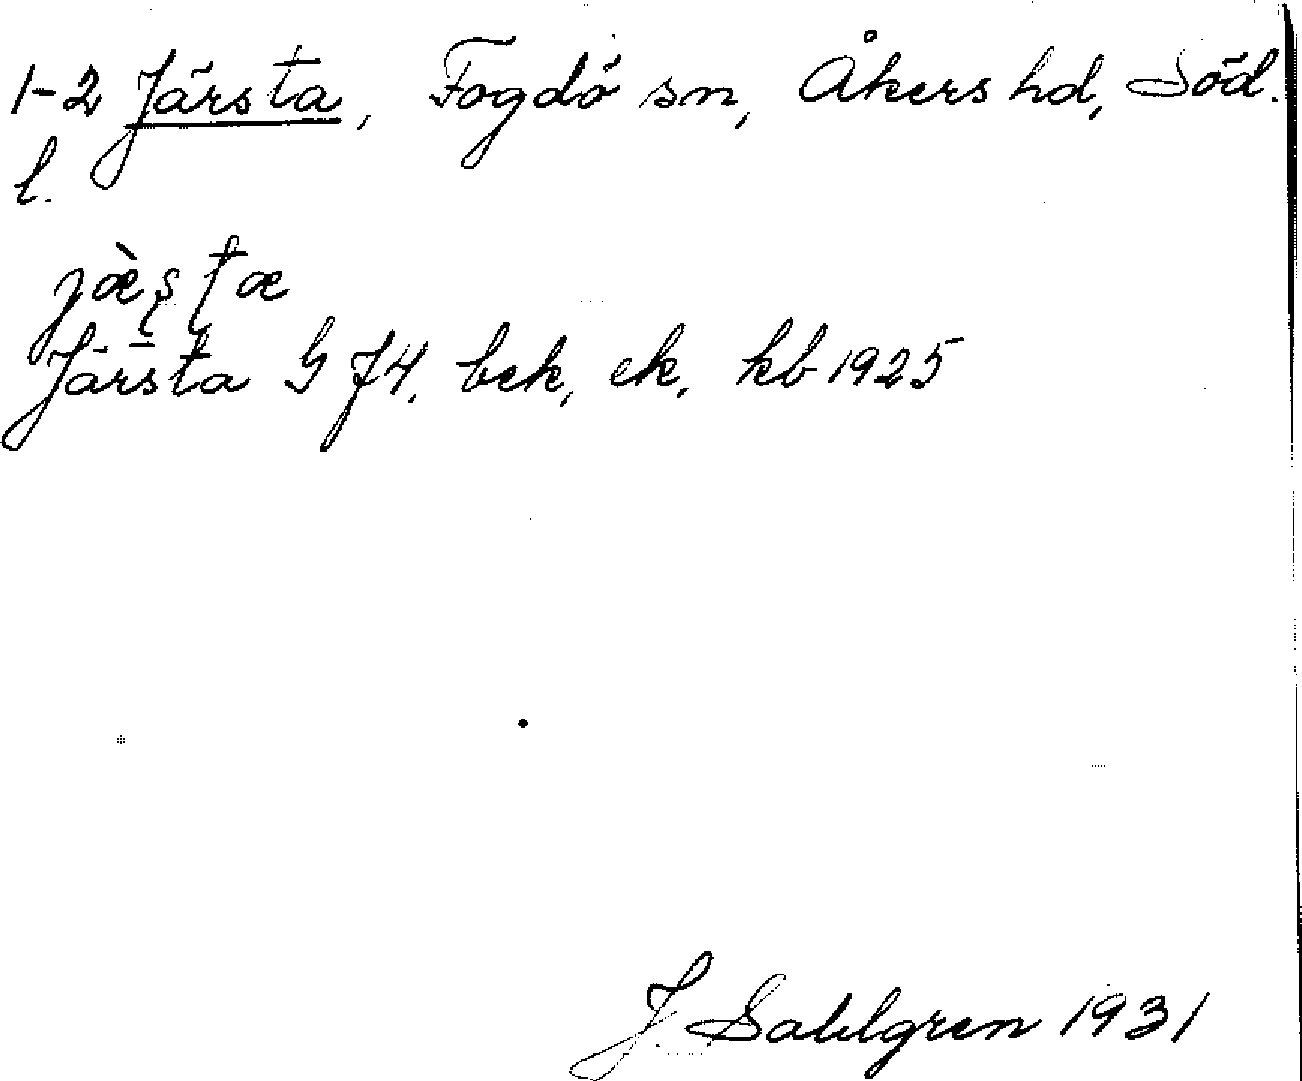 1-2 Järsta, Fogdö sn, Åkers hd, Söd.
l.
jæ̀ʂʈæ
Järsta GJ4, bek, ek, kb 1925
J. Sahlgren 1931